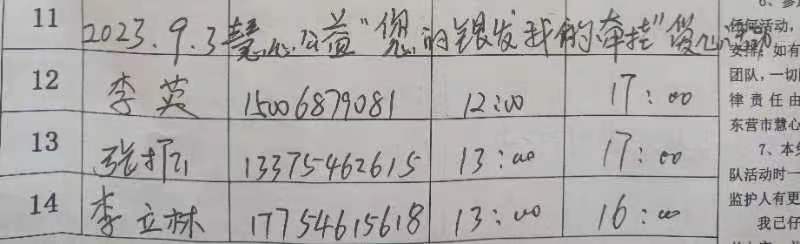 11 2023.9.3慧心公益"您的银发我的牵挂"爱心活动
12 李英 15006879081 12:00 17:00
13 张 13375462615 13:00 17:00
14 李立林 17754615618 13:00 16:00
任何活动,
安排,如有
团队,一切
律责任由
东营市慧心
7、本
队活动时一
监护人有更
我已仔